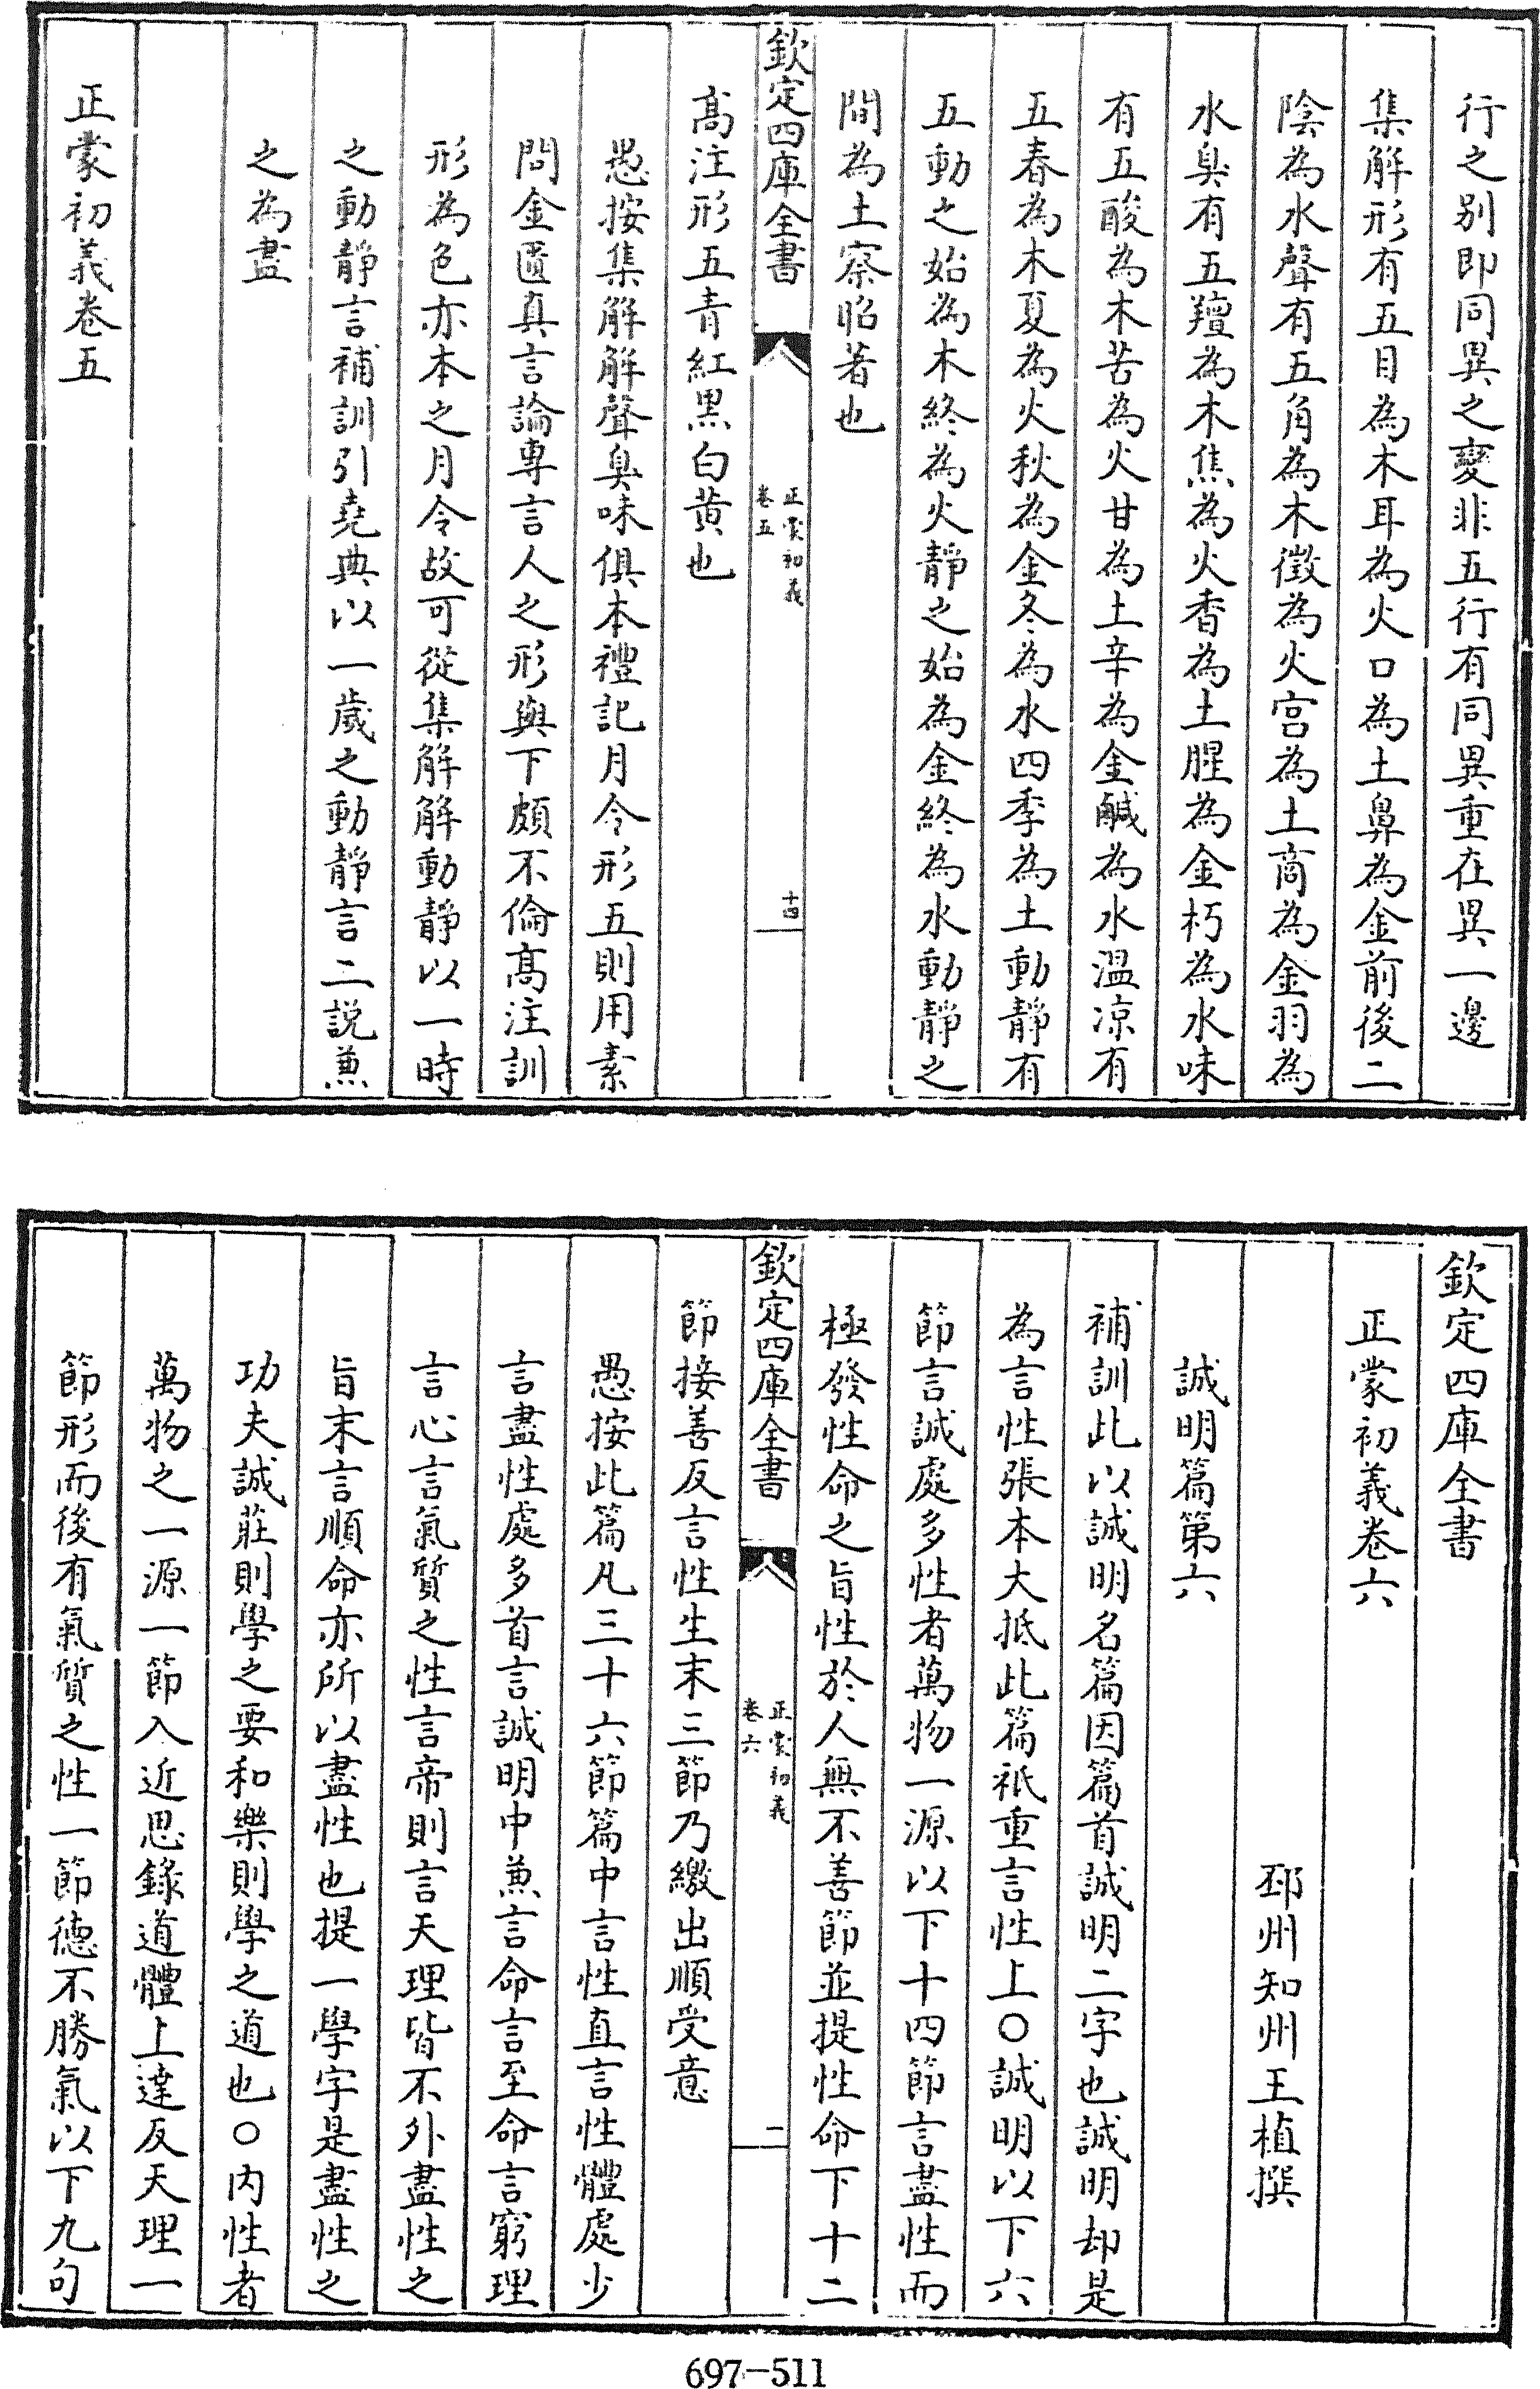 行之别即同異之變非五行有同異重在異一邊
集解形有五目為木耳為火口為土鼻為金前後二
陰為水聲有五角為木徵為火宫為土商為金羽為
水臭有五羶為木焦為火香為土腥為金朽為水味
有五酸為木苦為火甘為土辛為金鹹為水温凉有
五春為木夏為火秋為金冬為水四季為土動靜有
五動之始為木終為火靜之始為金終為水動靜之
間為土察昭著也
欽定四庫全書
正蒙初義
卷五
十四
髙注形五青紅黒白黄也
愚按集解解聲臭味俱本禮記月令形五則用素
問金匱真言論專言人之形與下頗不倫髙注訓
形為色亦本之月令故可從集解解動靜以一時
之動靜言補訓引堯典以一歲之動靜言二説兼
之為盡
正蒙初義卷五
欽定四庫全書
正蒙初義卷六
邳州知州王植撰
誠明篇第六
補訓此以誠明名篇因篇首誠明二字也誠明却是
為言性張本大抵此篇祇重言性上○誠明以下六
節言誠處多性者萬物一源以下十四節言盡性而
極發性命之旨性於人無不善節並提性命下十二
節接善反言性生末三節乃繳出順受意
欽定四庫全書
正蒙初義
卷六
二
愚按此篇凡三十六節篇中言性直言性體處少
言盡性處多首言誠明中兼言命言至命言窮理
言心言氣質之性言帝則言天理皆不外盡性之
旨末言順命亦所以盡性也提一學字是盡性之
功夫誠莊則學之要和樂則學之道也○内性者
萬物之一源一節入近思錄道體上達反天理一
節形而後有氣質之性一節德不勝氣以下九句
697-511